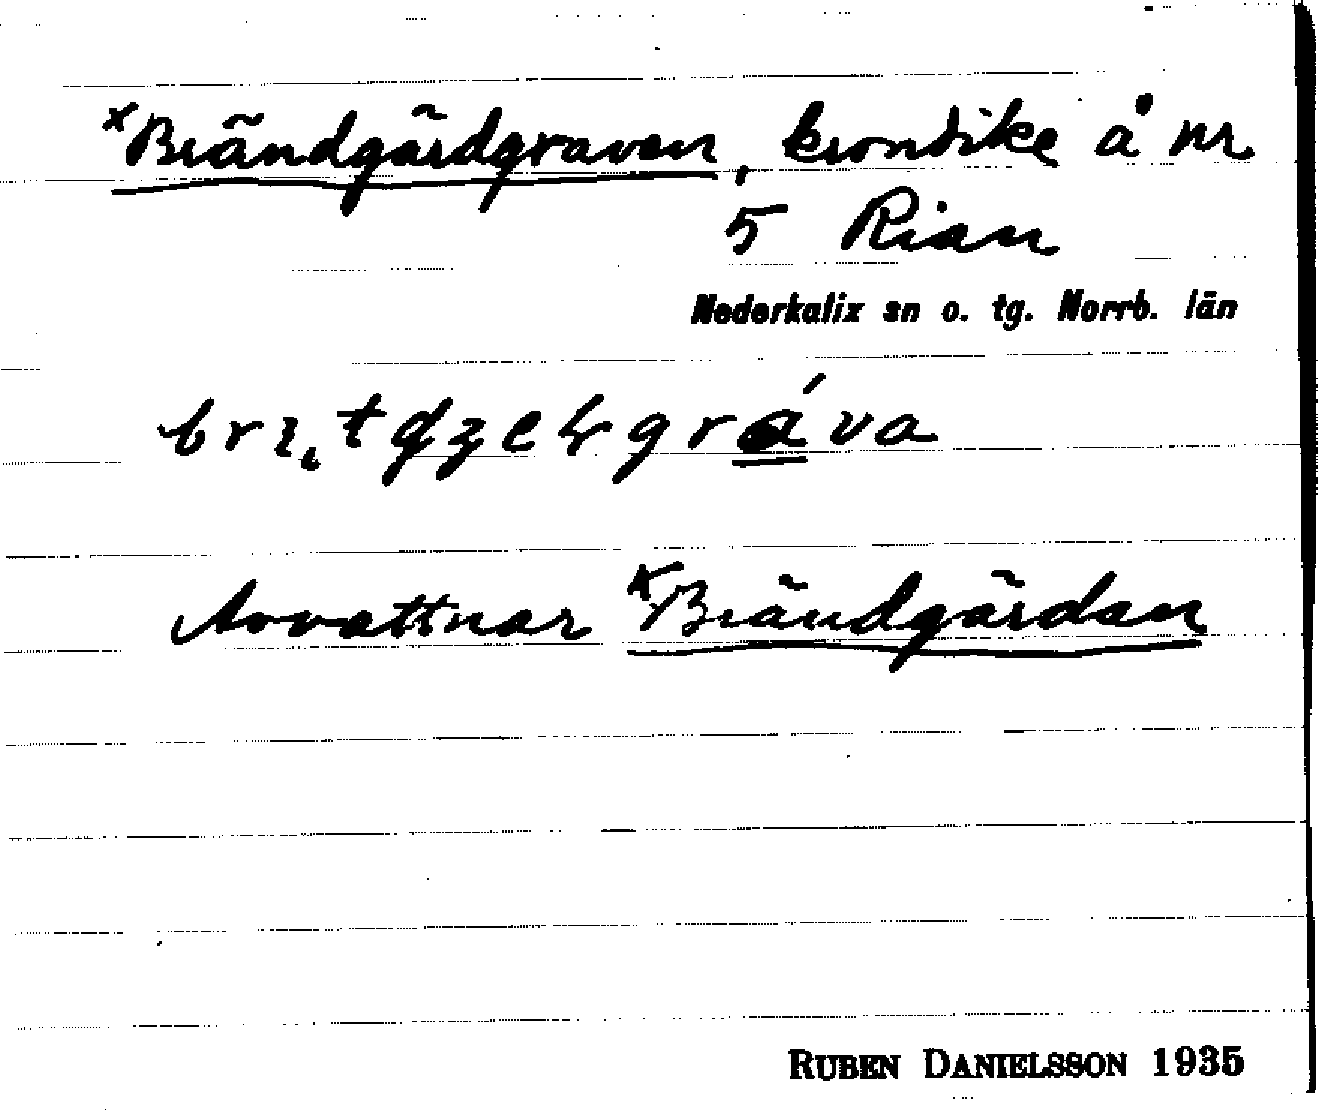 ×Brändgärdgraven, krondike å nr
5 Rian
Nederkalix sn o. tg. Norrb. län
Avvattnar ×Brändgärdan
RUBEN DANIELSSON 1935